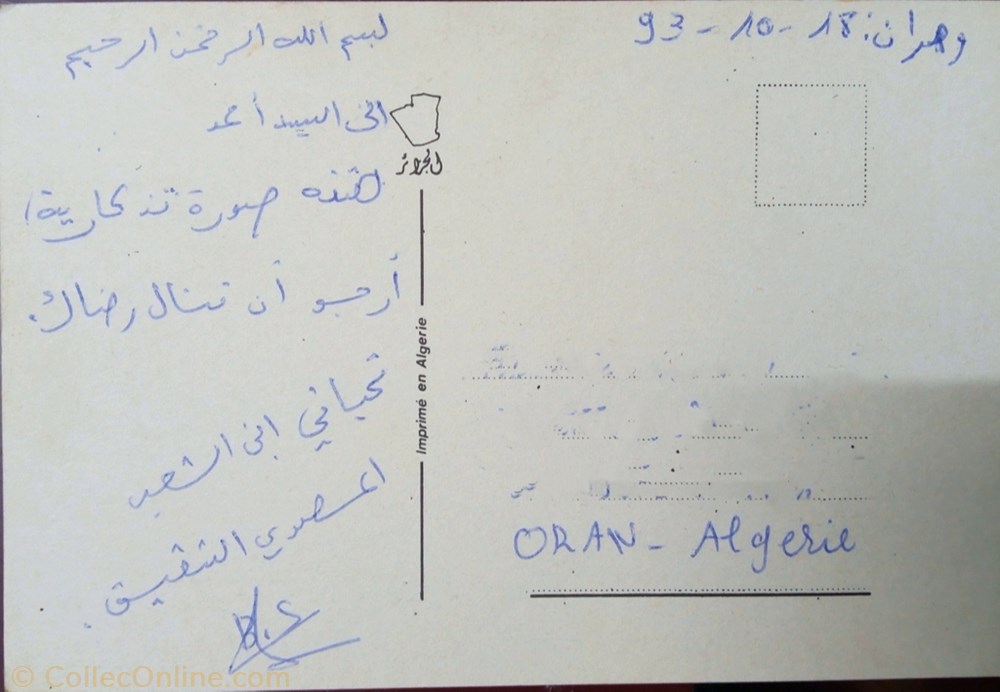 وهران: 18-10-93
بسم الله الرحمن الرحيم
الى السيد أحمد
هذه صورة تذكارية،
أرجو أن تنال رضاك.
تحياتي الى الشعب
المصري الشقيق.
الجزائر
Imprimé en Algerie
ORAN - Algerie
© CollecOnline.com